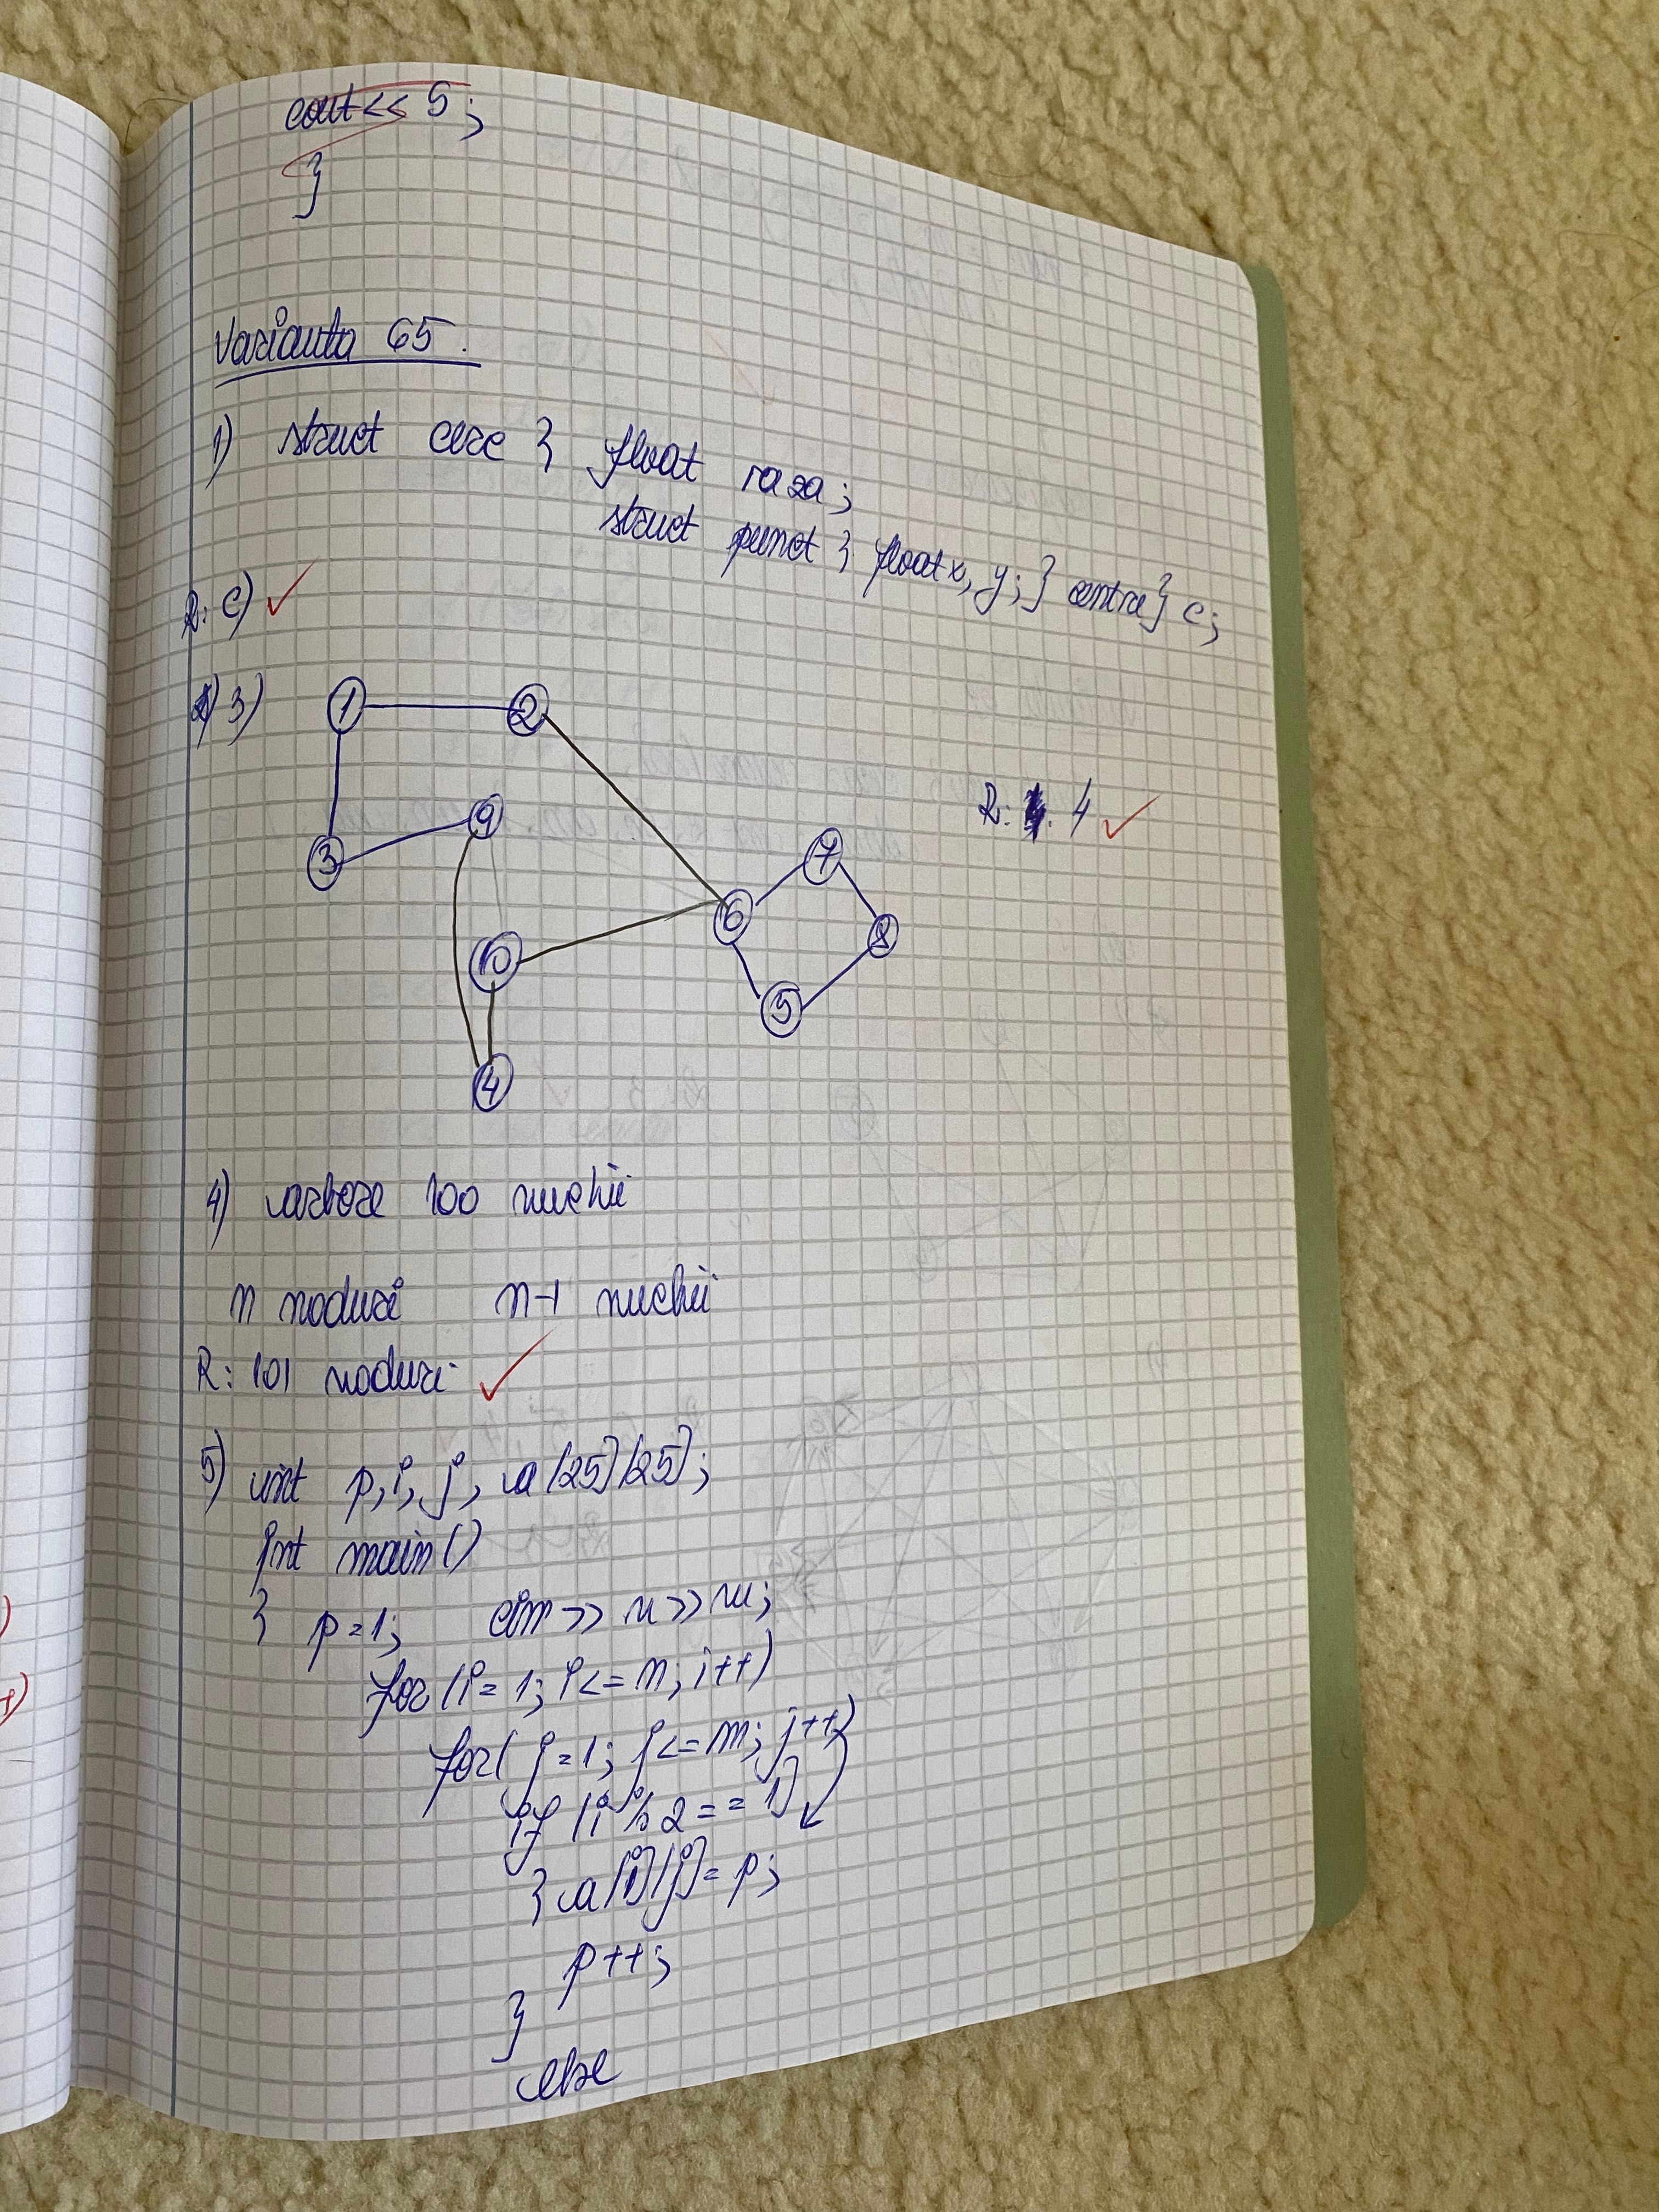 cout<< 5;
}
Varianta 65.
1) struct cerc { float raza;
struct punct { float x, y; } centru } c;
R: c) ✓
3)
1
2
3
9
10
4
6
7
8
5
R: 4 ✓
4) arbore 100 muchii
n noduri n-1 muchii
R: 101 noduri ✓
5) int p, i, j, a[25][25];
int main()
{ p=1; cin >> n >> m;
for (i=1; i<=n; i++)
for( j=1; j<=m; j++)
if (i%2==1)
{ a[i][j]=p;
p++;
}
else